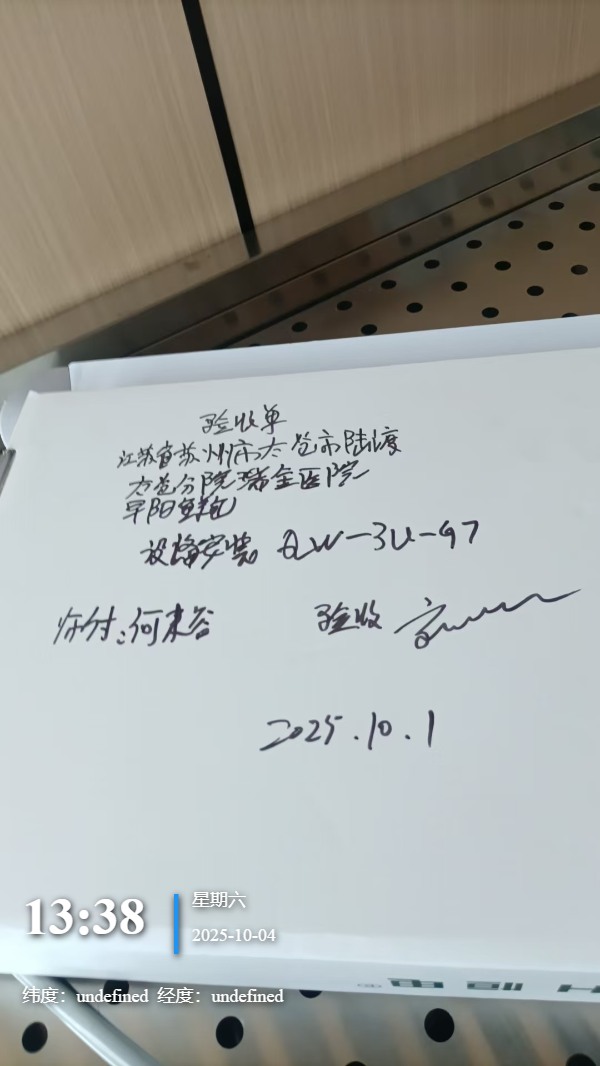 验收单
江苏省苏州市太仓市陆渡
太仓分院瑞金医院
早阳生煎包
设备安装 QW-3U-G7
交付:何来谷 验收
2025.10.1
13:38
星期六
2025-10-04
纬度:undefined 经度:undefined